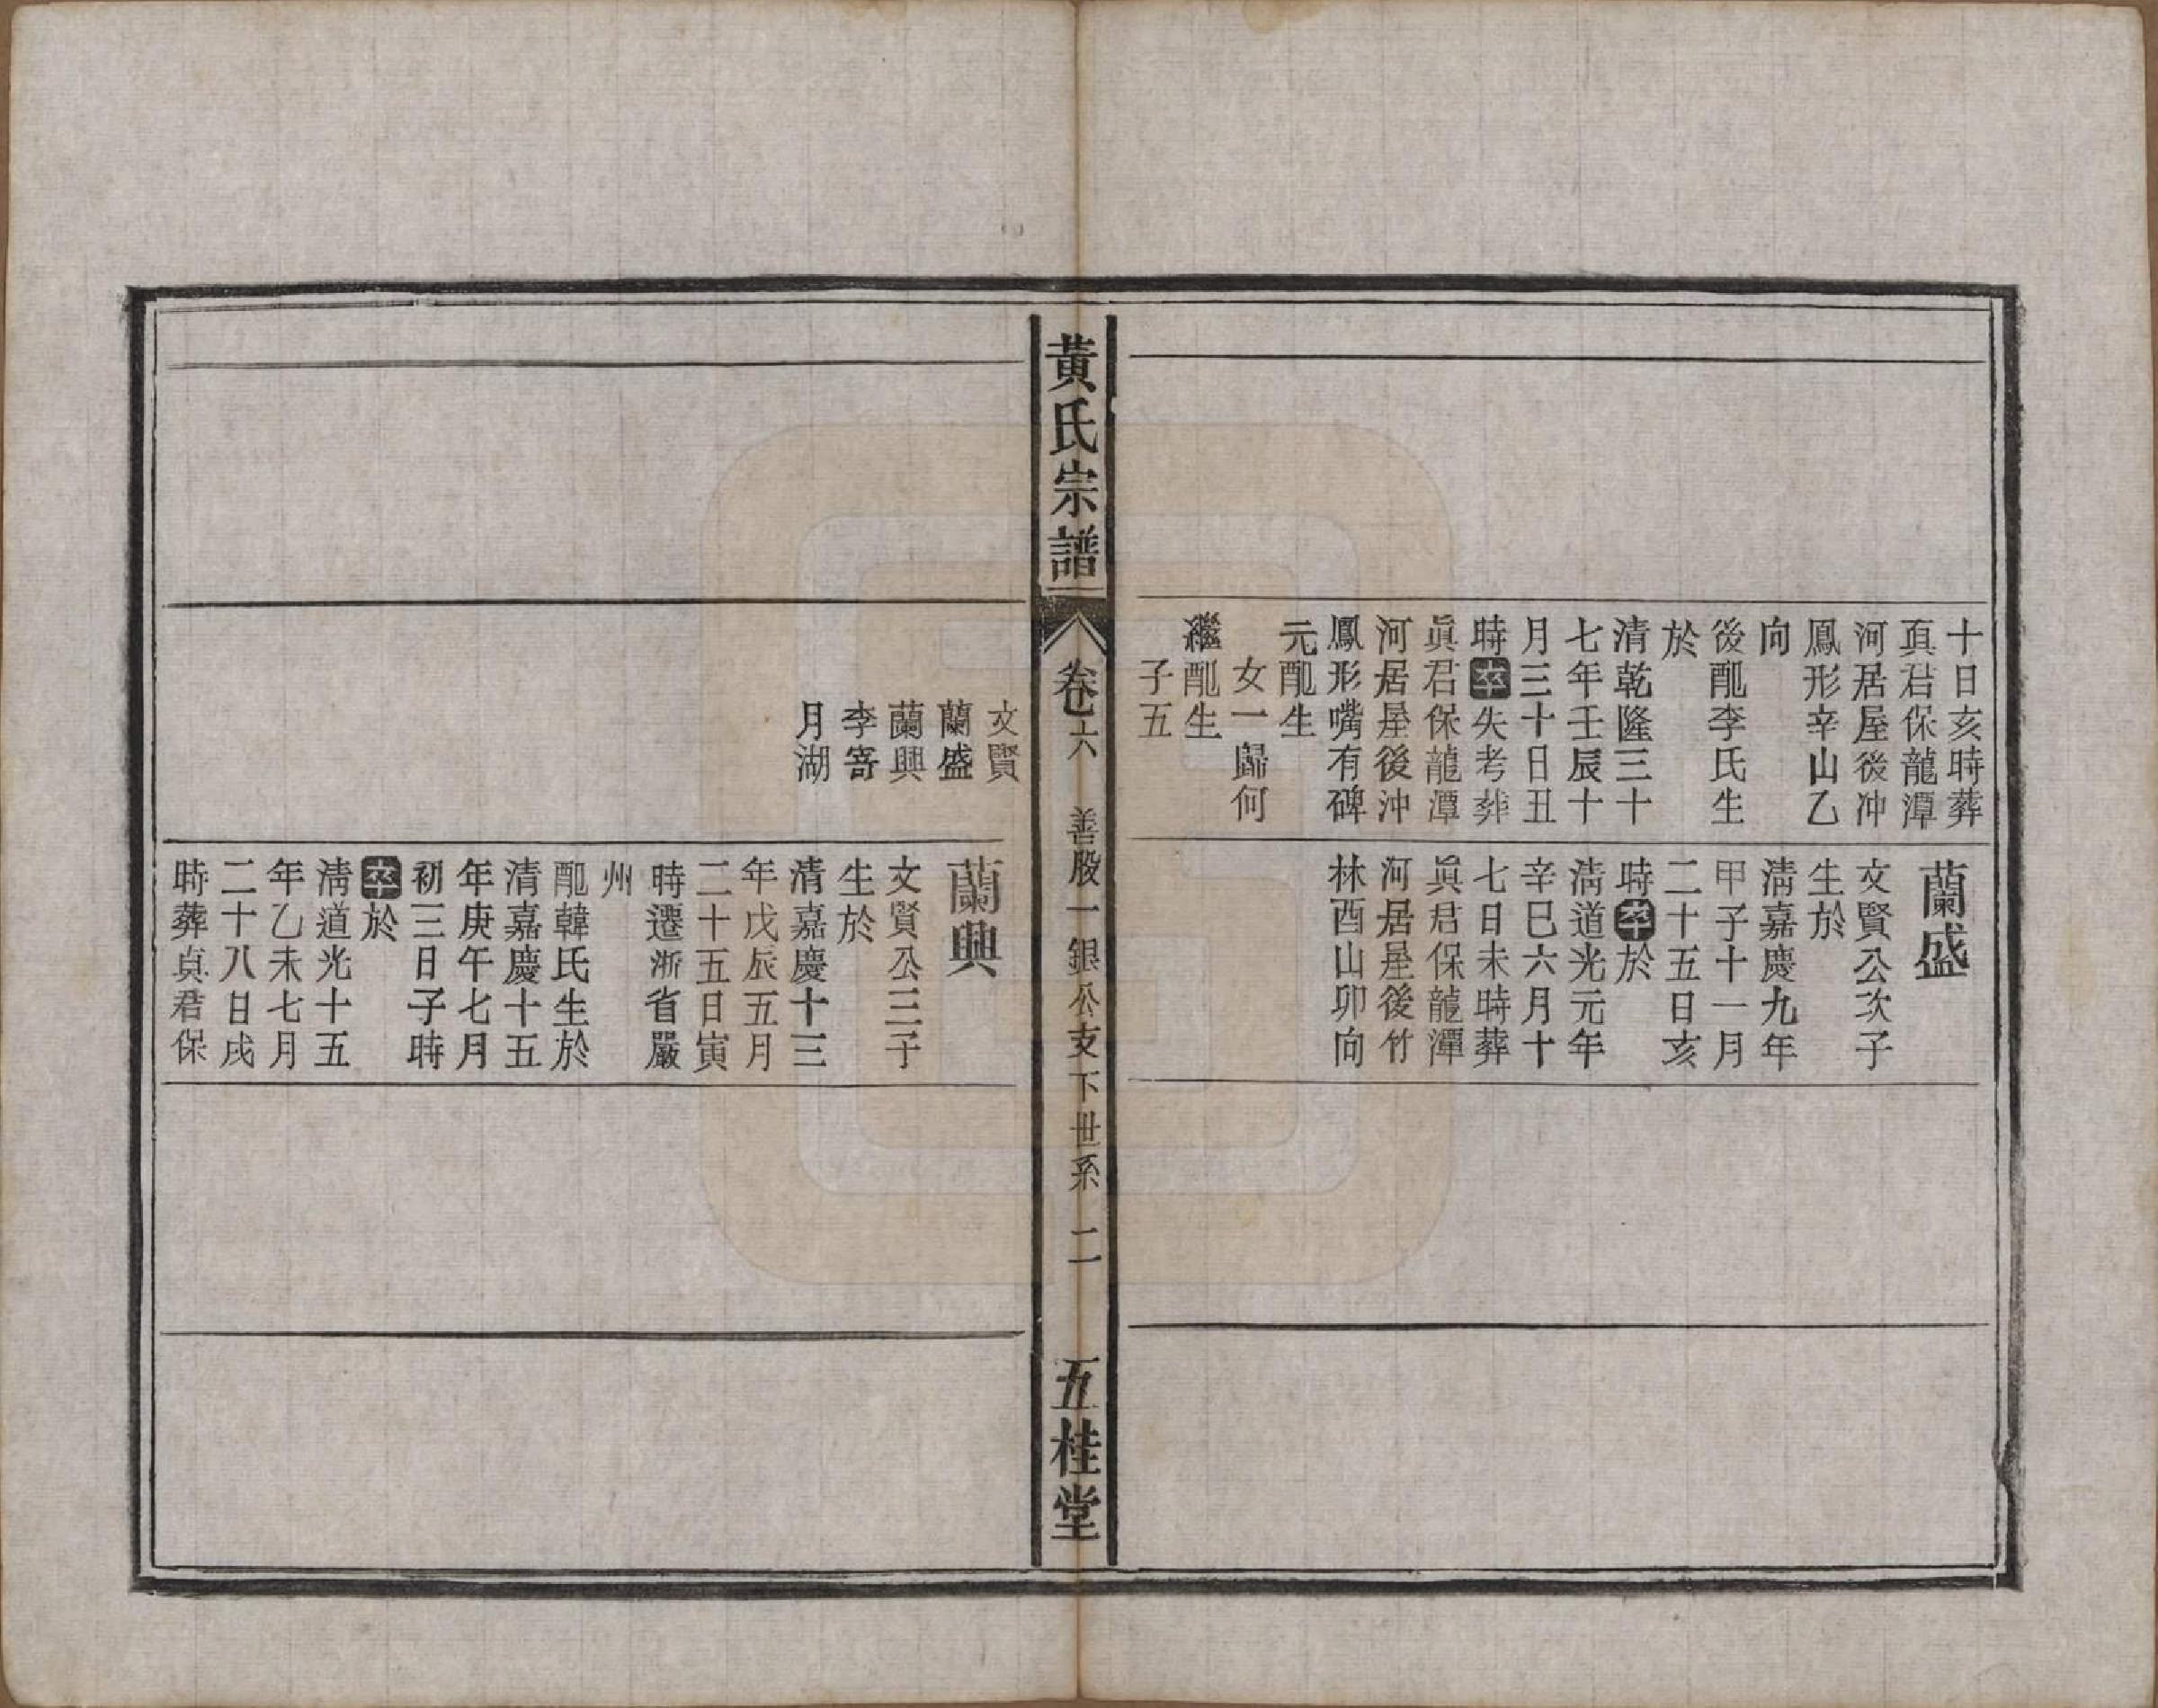 十日亥時葬
真君保龍潭
河居屋後冲
鳳形辛山乙
向
後配李氏生
於
清乾隆三十
七年壬辰十
月三十日丑
時卒失考葬
眞君保龍潭
河居屋後沖
鳳形嘴有碑
元配生
女一歸何
繼配生
子五
蘭盛
文賢公次子
生於
清嘉慶九年
甲子十一月
二十五日亥
時卒於
清道光元年
辛巳六月十
七日未時葬
眞君保龍潭
河居屋後竹
林酉山卯向
黃氏宗譜
卷六
善股一銀公支下世系
二
五桂堂
文賢
蘭盛
蘭興
李寄
月湖
蘭興
文賢公三子
生於
清嘉慶十三
年戊辰五月
二十五日寅
時遷浙省嚴
州
配韓氏生於
清嘉慶十五
年庚午七月
初三日子時
卒於
清道光十五
年乙未七月
二十八日戌
時葬貞君保